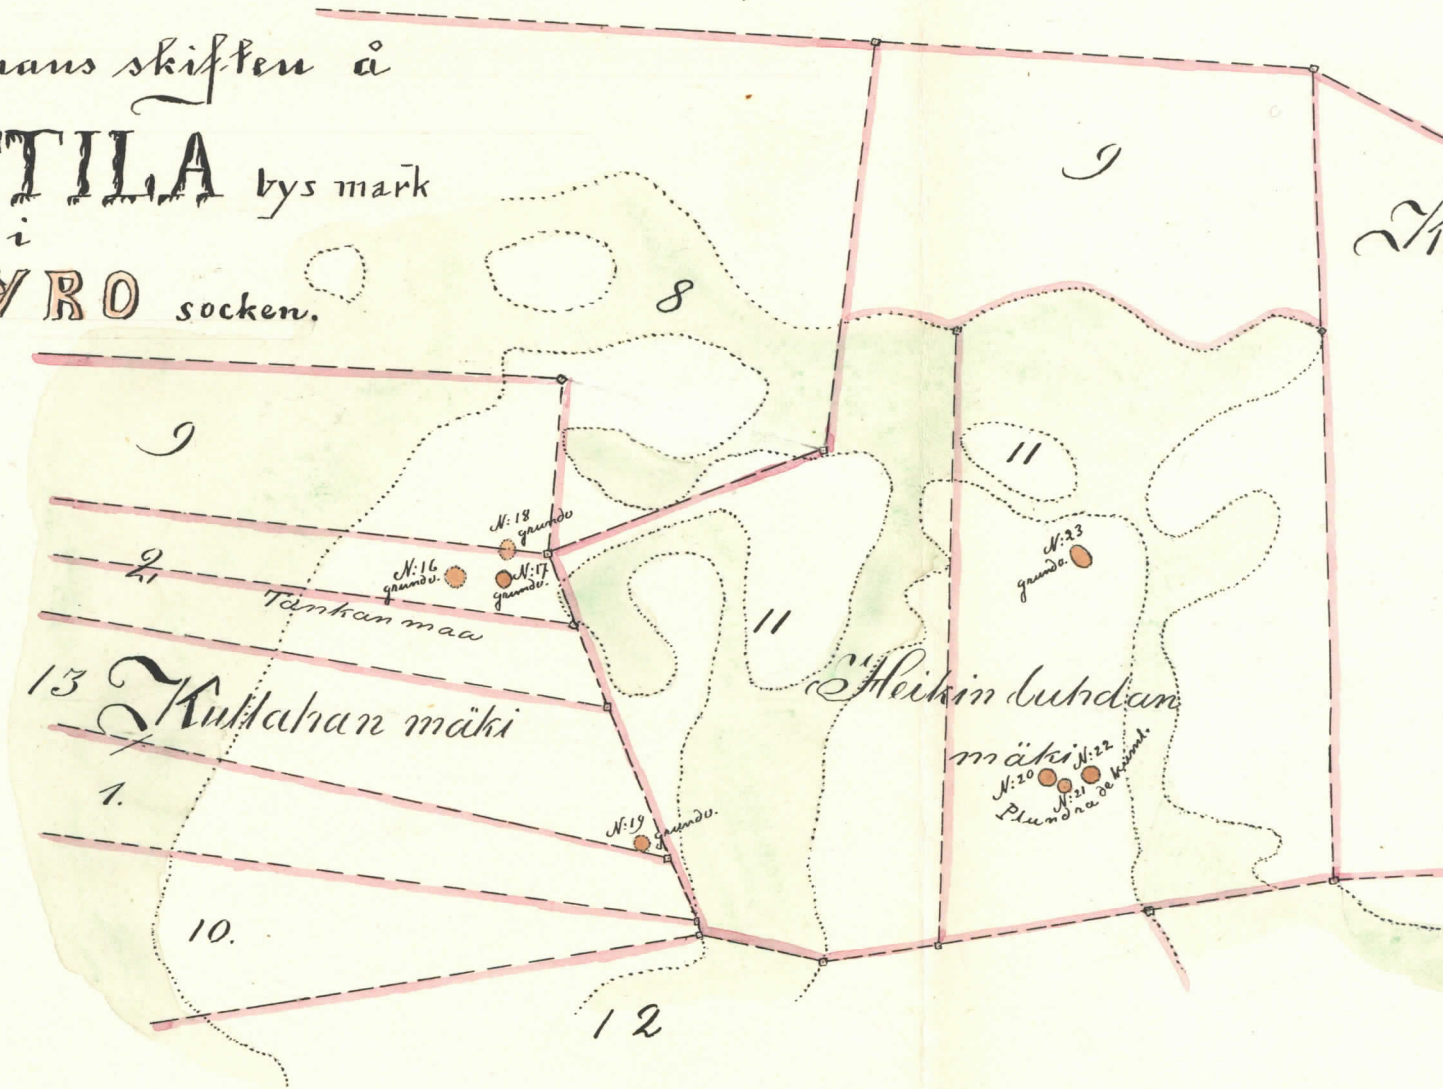 skiften å
TILA bys mark
i
YRO socken.
9
8
9
11
N:18
grundv
N:23
grundv.
2,
N:16
grundv.
N:17
grundv.
Tankan maa
11
13 Kultahan mäki
Heikin luhdan
mäki
N:20
N:22
N:21
Plundrade
1.
N:19
grundv.
10.
12